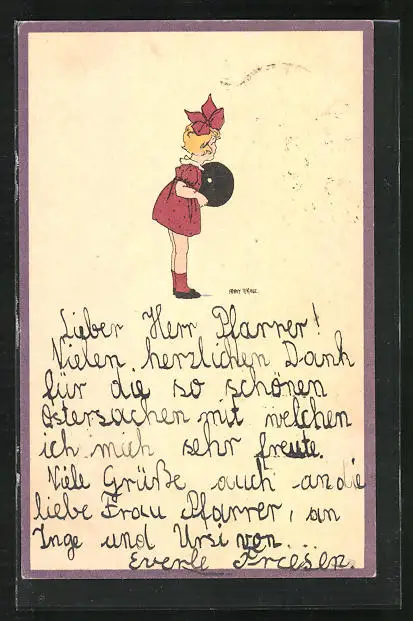 Lieber Herr Pfarrer!
Vielen herzlichen Dank
für die so schönen
Ostersachen mit welchen
ich mich sehr freute.
Viele Grüße auch an die
liebe Frau Pfarrer, an
Inge und Ursi von...
Everle Friesen.